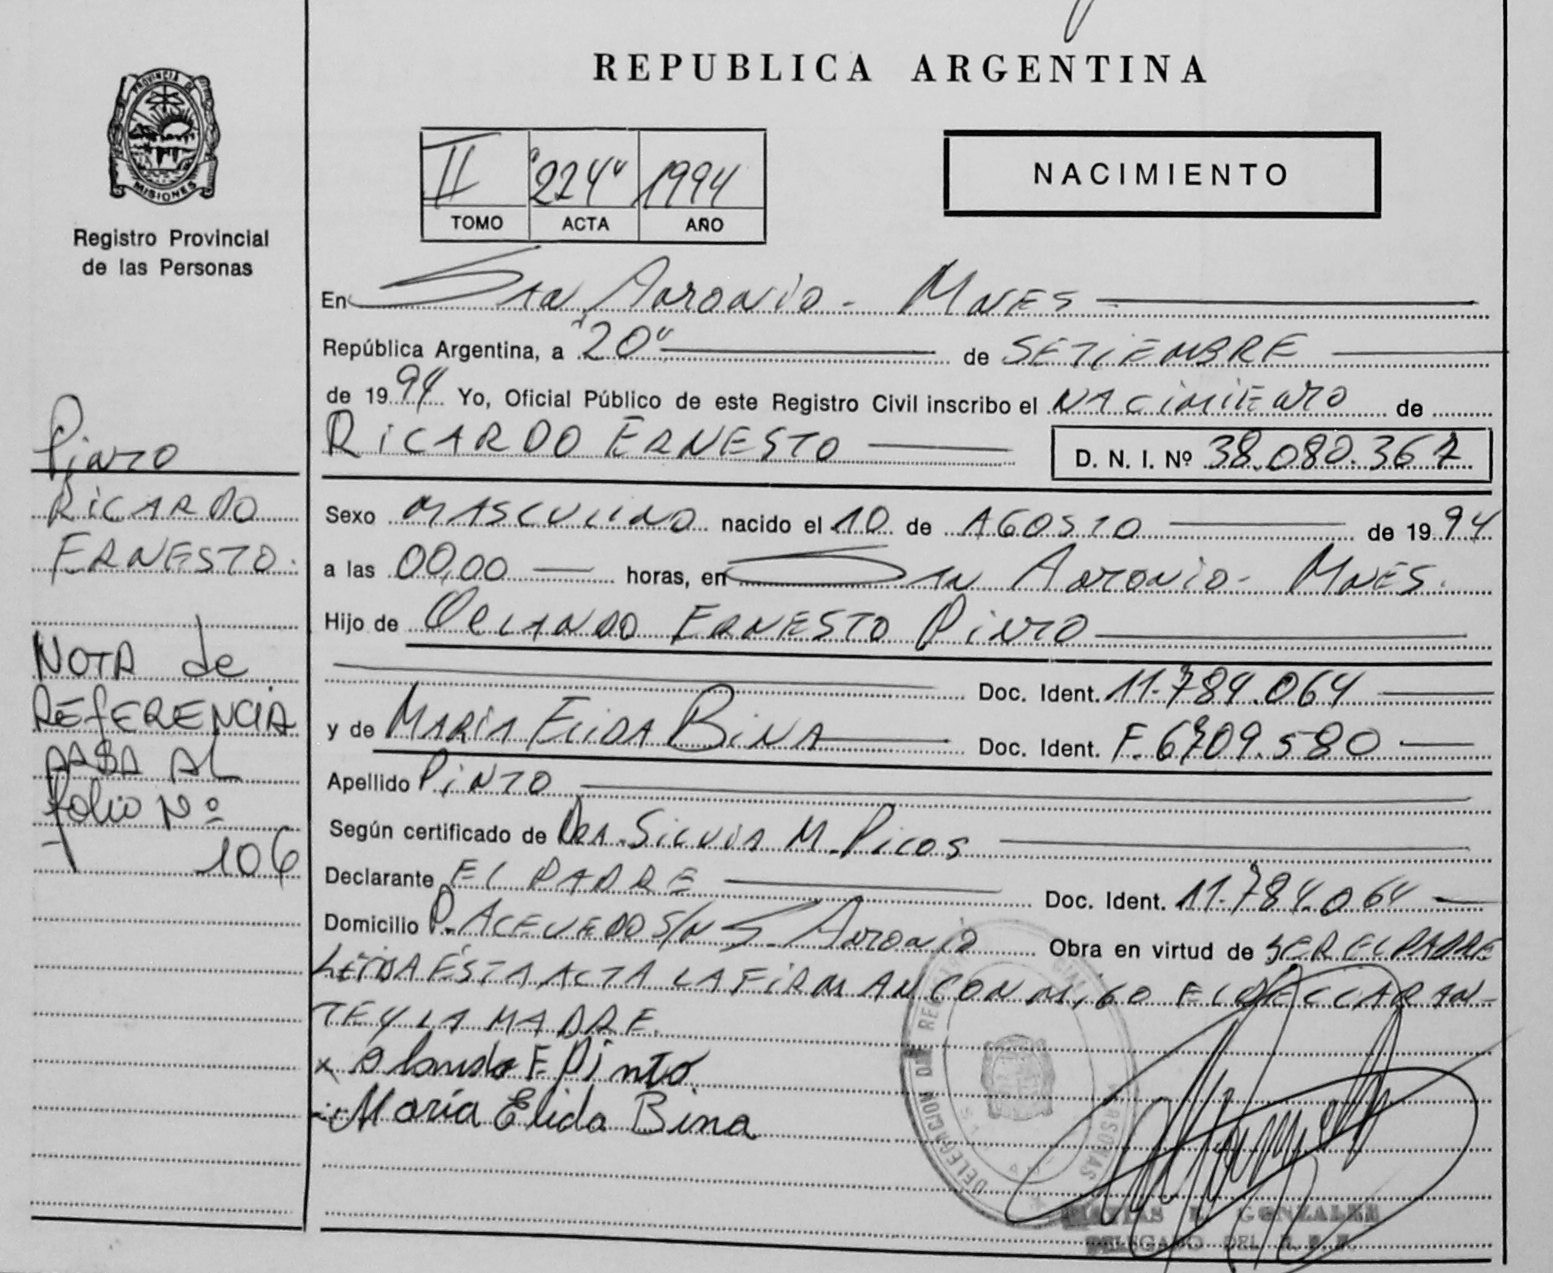 REPUBLICA ARGENTINA
PROVINCIA DE
MISIONES
Registro Provincial
de las Personas
II "224" 1994
TOMO ACTA AÑO
NACIMIENTO
En San Antonio - Mnes
República Argentina, a "20" de SETIEMBRE
de 1994 Yo, Oficial Público de este Registro Civil inscribo el NACIMIENTO de
RICARDO ERNESTO D. N. I. Nº 38.080.367
Pinto
RICARDO
ERNESTO.
Sexo MASCULINO nacido el 10 de AGOSTO de 1994
a las 00,00 horas, en San Antonio - Mnes.
Hijo de ORLANDO ERNESTO PINTO
Doc. Ident. 11.784.064
y de MARÍA ELIDA BINA Doc. Ident. F.6709.580
NOTA de
REFERENCIA
PASA AL
folio Nº
106
Apellido PINTO
Según certificado de DRA. SILVIA M. PICOS
Declarante EL PADRE Doc. Ident. 11.784.064
Domicilio P. ACEVEDO S/N S. Antonio Obra en virtud de SER EL PADRE
LEIDA ÉSTA ACTA LA FIRMAN CONMIGO EL DECLARAN-
TE Y LA MADRE.
x Orlando E Pinto
María Elida Bina
DELEGACION DE
GONZALEZ
DELEGADO DEL R. P. P.